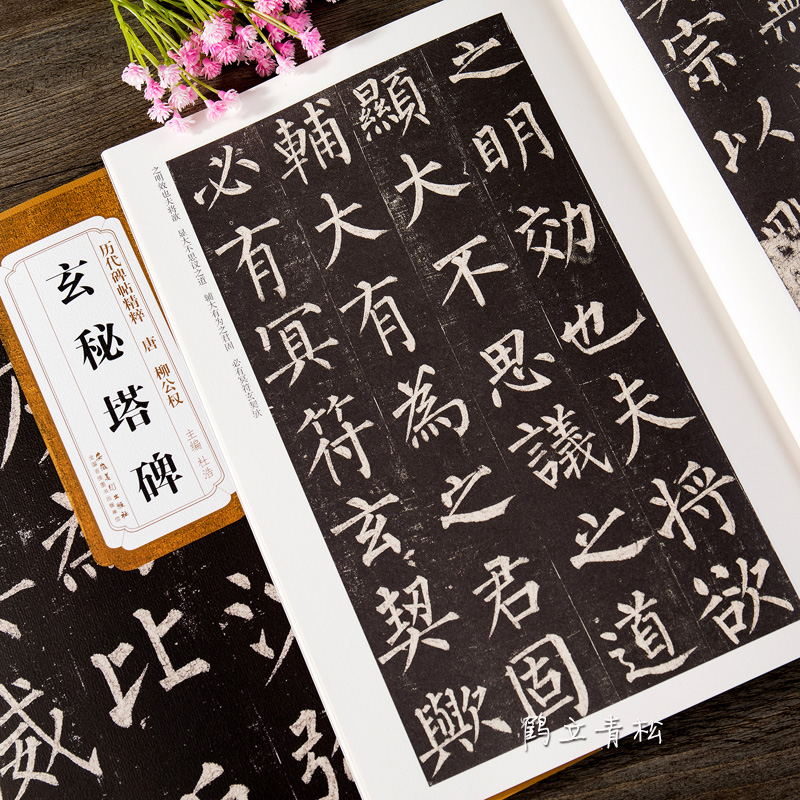 之明效也夫将欲　显大不思议之道　辅大有为之君固　必有冥符玄契欤
之明効也夫將欲
顯大不思議之道
輔大有為之君固
必有冥符玄契歟
宗以
历代碑帖精粹　唐　柳公权
玄秘塔碑
主编　杜浩
安徽美术出版社
以
威
鹤立青松